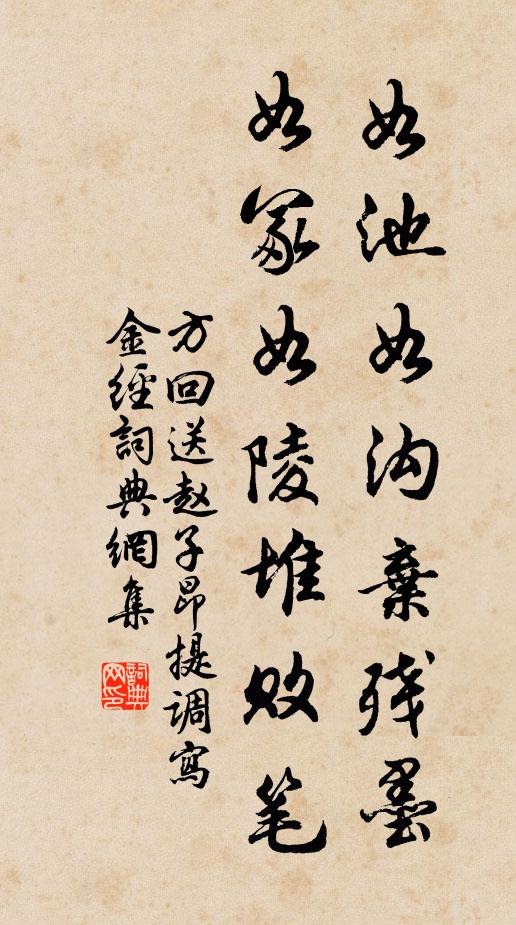 如池如沟棄残墨
如冢如陵堆败笔
方回送赵子昂提调寫
金經詞典網集
詞典网印